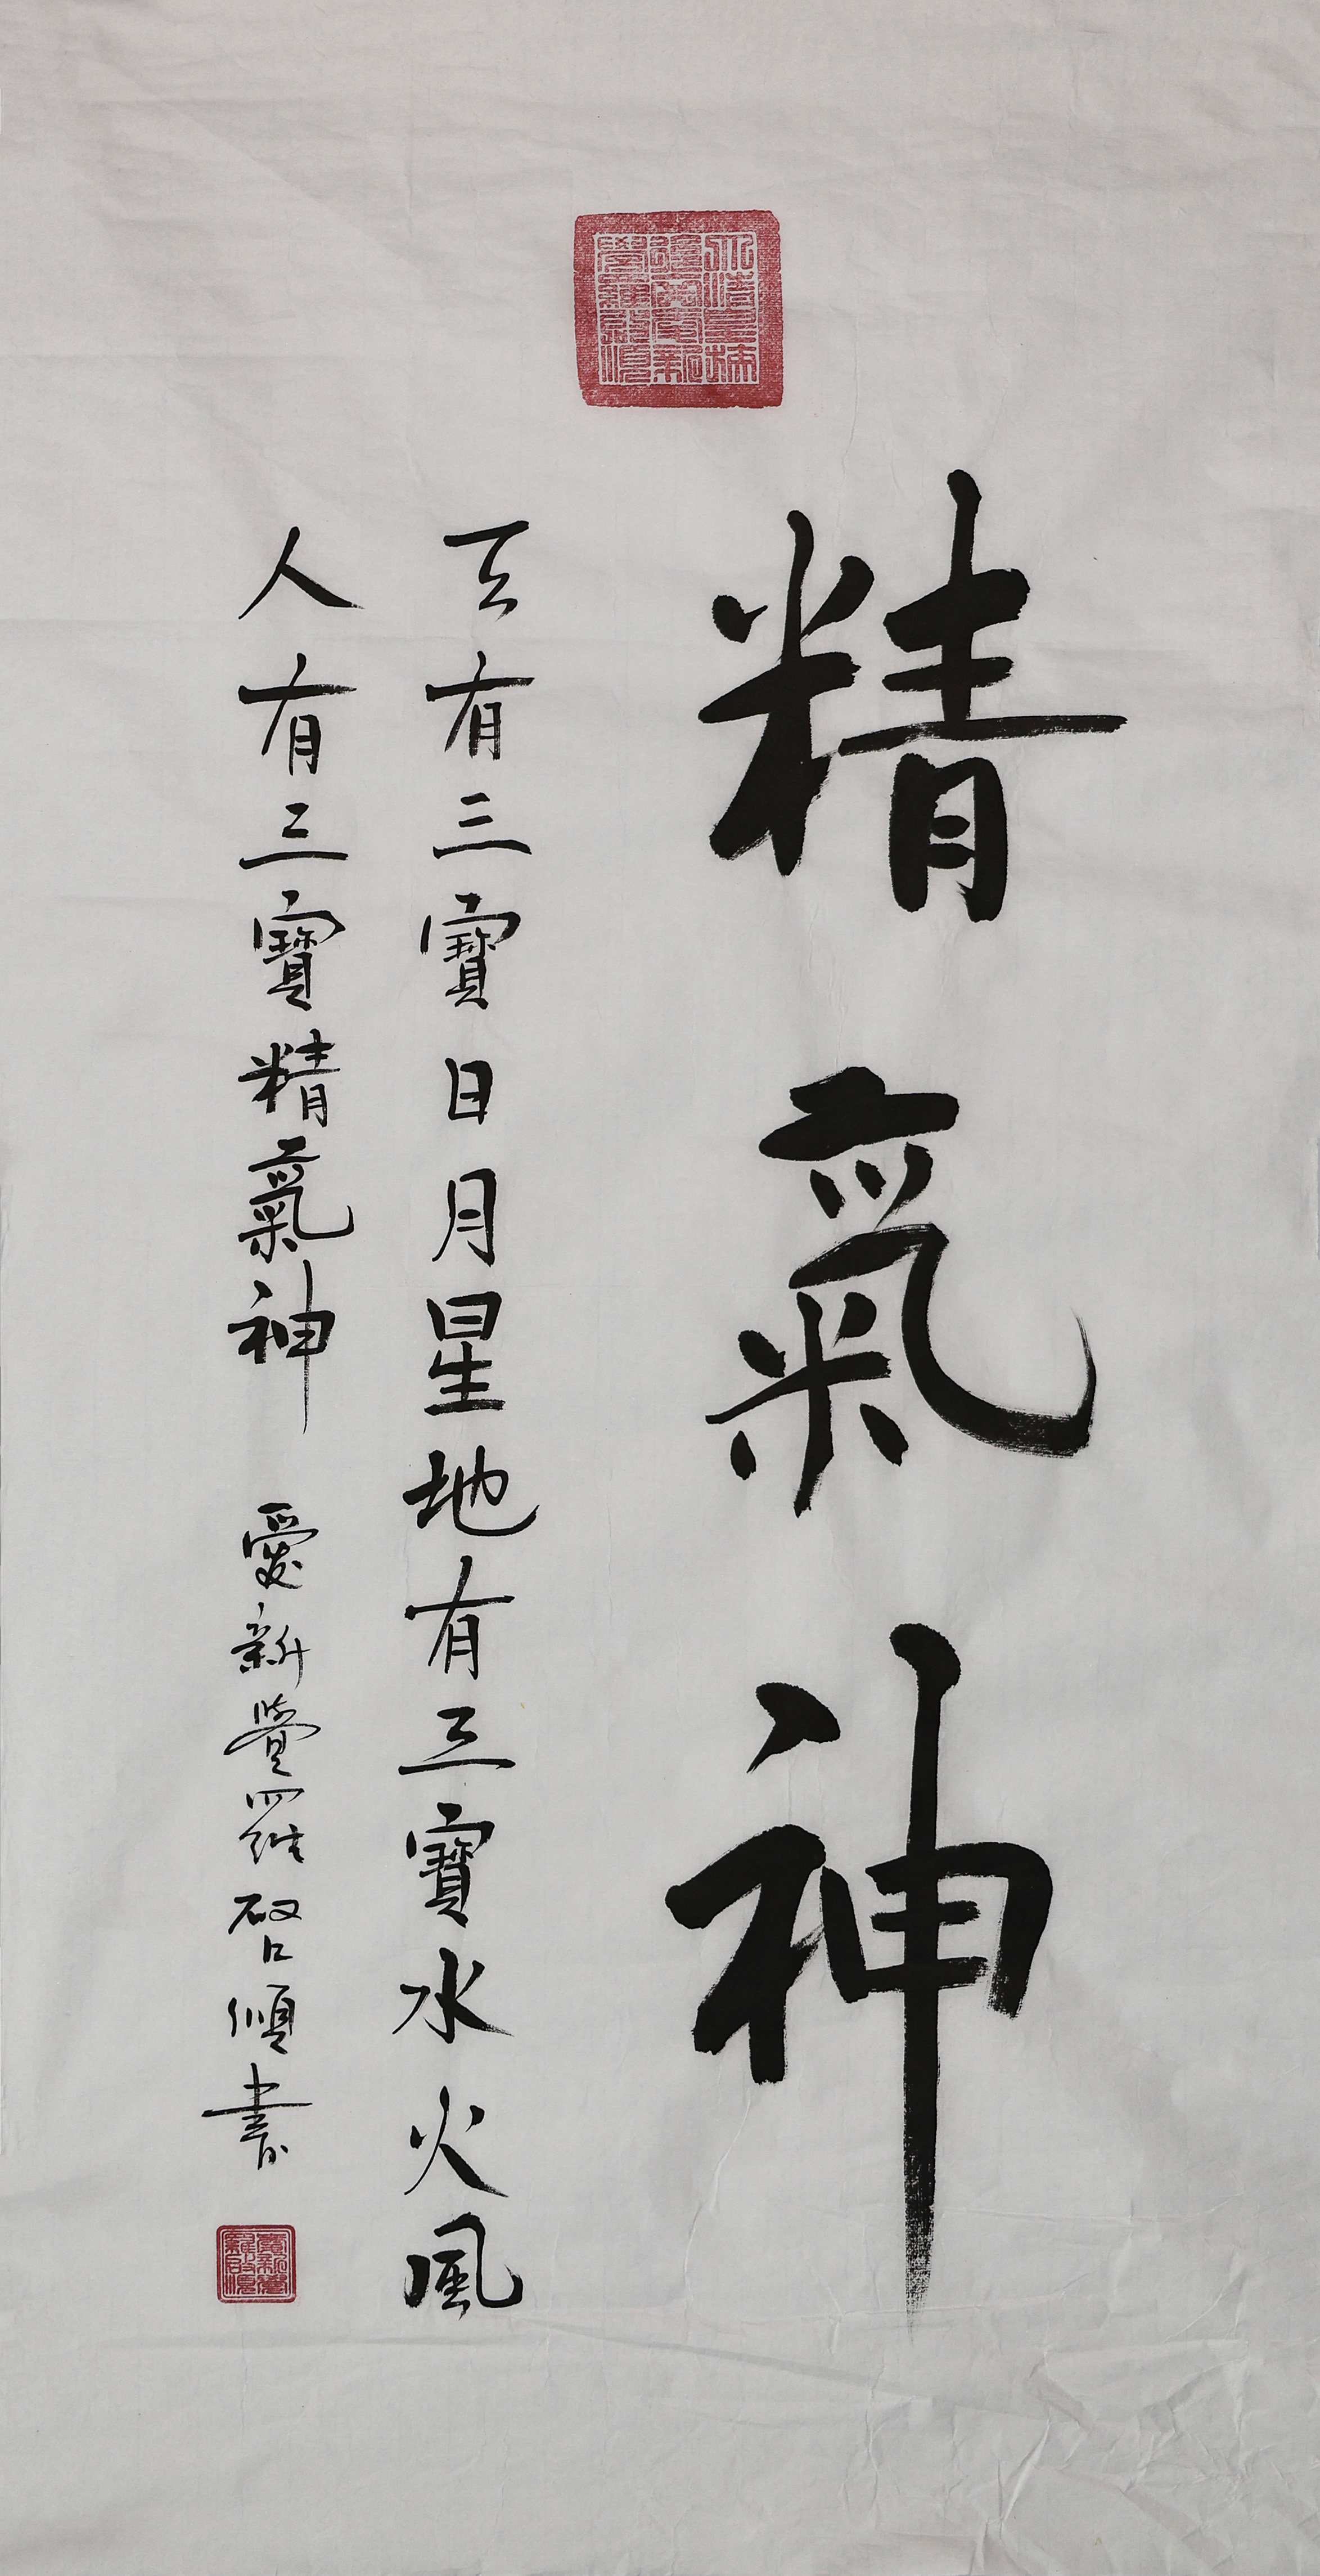 精氣神
天有三寶日月星地有三寶水火風
人有三寶精氣神 愛新覺羅啓順書